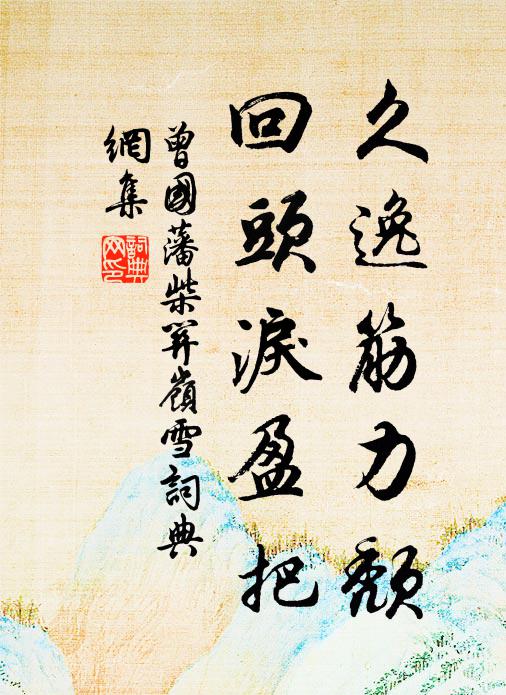 久逸筋力颓
回頭淚盈把
曾國藩柴关嶺雪詞典
網集
詞典網印